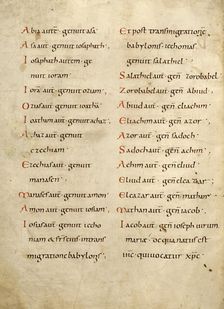 Abia aut̄ · genuit asa
Asa aut̄ · genuit iosaphath
Iosaphath autem · ge
nuit ioram ·
Iora aut̄ · genuit oziam ·
Ozias aut̄ · genuit ioathā
Ioatham aut̄ · genuit achaz
Achaz aut̄ · genuit
ezechiam
Ezechias aut̄ · genuit
manasen ·
Manases aut̄ · genuit amon
Amon aut̄ · genuit iosiam ·
Iosias aut̄ · genuit iecho
niam & frs eius · in trans
migratione babylonis ·
Et post transmigratione
babylonis · iechonias ·
genuit salathiel ·
Salathiel aut̄ · geñ zorobabel
Zorobabel aut̄ · geñ abiud
Abiud aut̄ · geñ eliachim
Eliachim aut̄ · geñ azor
Azor aut̄ · geñ sadoch
Sadoch aut̄ · geñ achim
Achim aut̄ · geñ eliud
Eliud aut̄ · geñ eleazar ·
Eleazar aut̄ · geñ mathan
Mathan aut̄ · geñ iacob ·
Iacob aut̄ · geñ ioseph uirum
mariae · de qua natus est
ihc · qui uocatur xp̄c